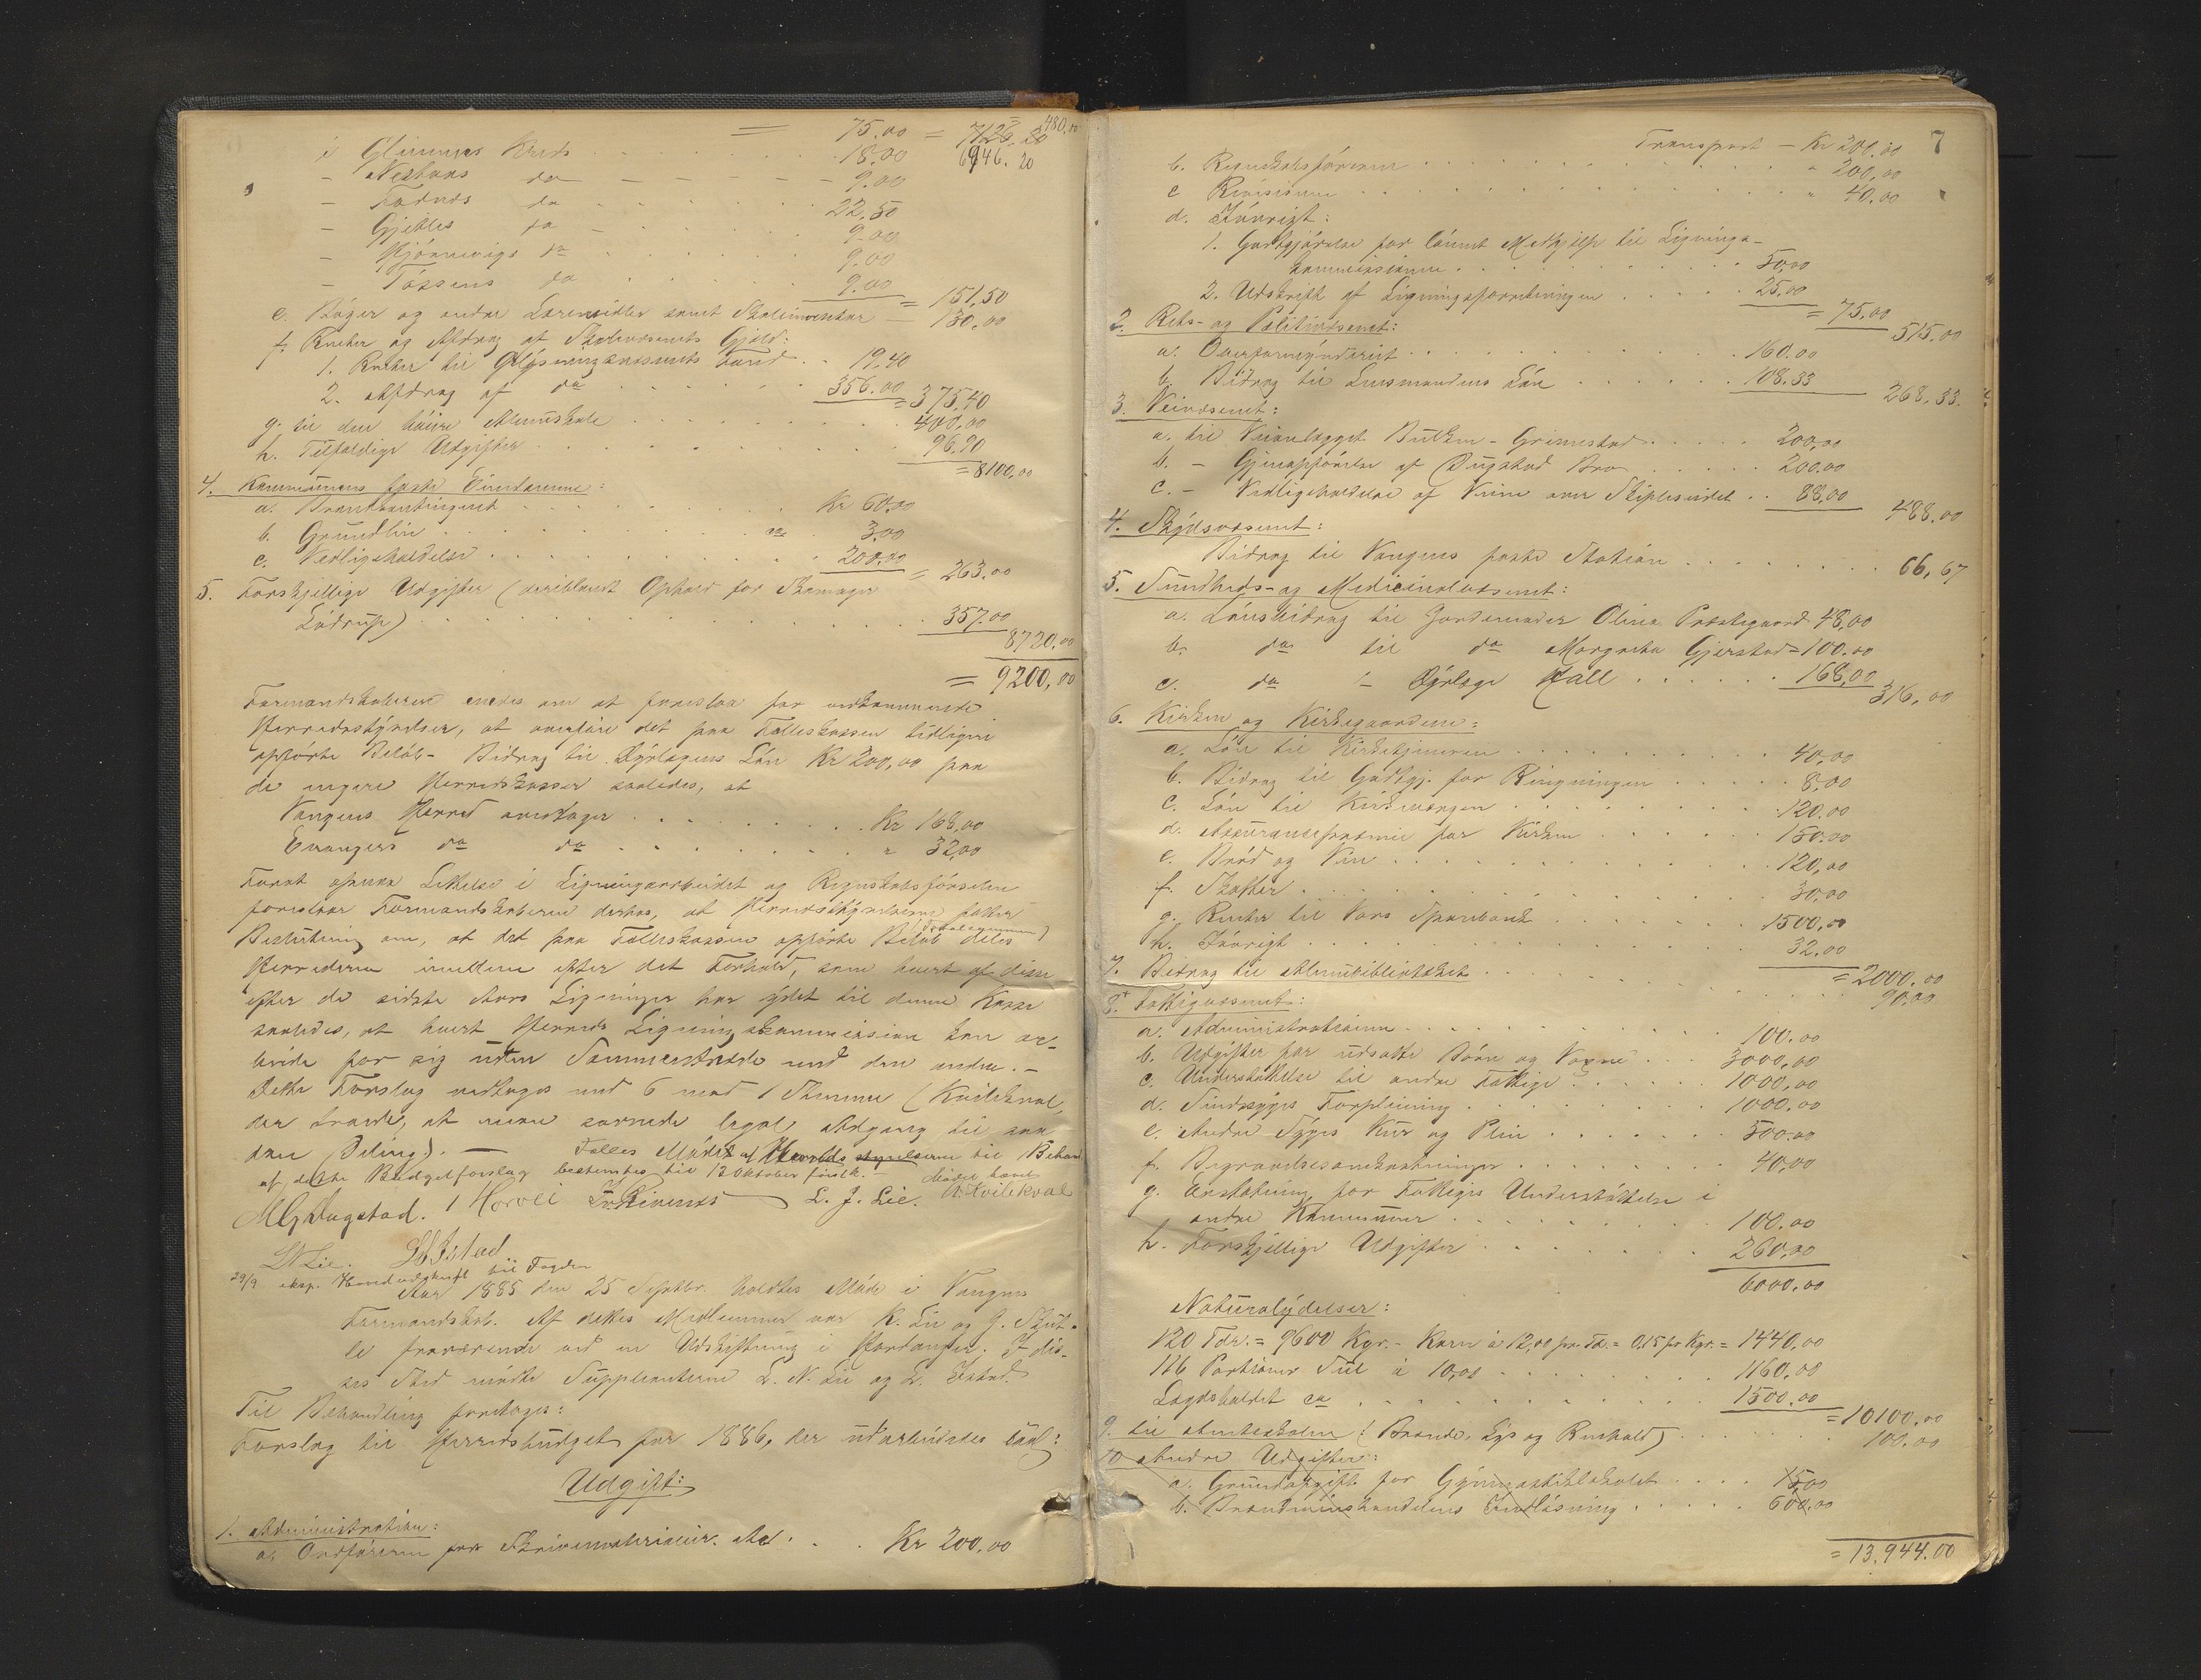 = 75.00 = 7126.20 480,00
i Glimmes Kreds . . . 18.00 6946.20
- Nesthus do - - - 9.00
- Fadnes do . . . 22,50
- Gjelles do - . . . 9.00
- Kjönnevigs do . . . 9.00
- Tössens do . . . 9.00 = 151,50
e. Böger og andre Læremidler samt Skoleinventar - 130,00
f. Renter og Afdrag af Skolevæsenets Gjæld:
1. Renter til Oplysningsvæsenets Fond . . 19.40
2. Afdrag af do . . . 356.00 = 375,40
g. til den höiere Almuskole . . . 400,00
h. Tilfældige Udgifter . . . 96,90
= 8100,00
4. Kommunens faste Eiendomme:
a. Brandkontingent . . . Kr 60,00
b. Grundlön . . . ca 3,00
c. Vedligeholdelse . . . 200,00 = 263,00
5. Forskjellige Udgifter (deriblandt Ophold for Skomager
Lödrup) . . . 357.00
8720,00
= 9200,00
Formandskaberne enedes om at foreslaa for vedkommende
Herredsstyrelser, at overföre det paa Fælleskassen tidligere
opförte Belöb - Bidrag til Dyrlægens Lön Kr 200,00 paa
de egne Herredskasser saaledes, at
Vangens Herred overtager . . . Kr 168,00
Evangers do do . . . " 32,00
Forat opnaa Lettelse i Ligningsarbeidet og Regnskabsförselen
foreslaar Formandskaberne derhos, at Herredsstyrelserne fatter
Beslutning om, at det paa Fælleskassen opförte Belöb (Totalsummen) deles
Herrederne imellem efter det Forhold, som hvert af disse
efter de sidste Aars Ligninger har ydet til denne Kasse
saaledes, at hvert Herreds Ligningskommission kan ar-
beide for sig uden Sammentræde med den anden. -
Dette Forslag vedtoges med 6 mod 1 Stemme (Kvilekval,
der troede, at mene savnede legal Adgang til saa-
dan Deling). - Fælles Möde af Herredsstyrelserne til Behand.
af dette Budgetforslag bestemtes til 12 Oktober förstk. - Mödet hævet
MGHaugstad. I Horvei L. J. Lie. A Kvilekval
L N Lie. LHIstad
29/9 eksp. Hovedudskrift til Fogden
Aar 1885 den 25 Septbr. holdtes Möde i Vangens
Formandskab. Af dettes Medlemmer var K. Lie og G. Skut-
le fraværende ved en Udskiftning i Hardanger. I dis-
ses Sted mödte Suppleanterne L. N. Lie og L. Istad.
Til Behandling foretoges:
Forslag til Herredsbudget for 1886, der udarbeidedes saal:
Udgift:
1. Administration:
a. Ordföreren for Skrivematerialier. Aal. . . Kr 200,00
7
Transport - Kr 200,00
b. Regnskabsföreren . . . " 200,00
c Revisionen . . . " 40,00
d. Iövrigt:
1. Godtgjörelse for lönnet Medhjelp til Lignings-
kommissionen . . . 50,00
2. Udskrift af Ligningsforretningen . . . 25,00
= 75,00 515,00
2. Rets- og Politivæsenet:
a. Overformynderiet . . . 160.00
b. Bidrag til Lensmandens Lön . . . 108.33 268,33.
3. Veivæsenet:
a. til Veianlægget Bulken - Grimestad . . . 200,00
b. - Gjenopförelse af Bugstad Bro . . . 200.00
c. - Vedligeholdelse af Veien over Skiplesundet . . 88,00 488,00
4. Skydsvæsenet:
Bidrag til Vangens faste Station . . . 66,67
5. Sundheds- og Medicinalvæsenet:
a. Lönsbidrag til Jordemoder Oline Præstegaard 48,00
b. do til do Margreta Gjerstad = 100.00
c. do " Dyrlæge Hall . . . 168,00 316,00
6. Kirken og Kirkegaardene:
a. Lön til Kirketjeneren . . . 40,00
b. Bidrag til Godtgj. for Ringningen . . . 8,00
c. Lön til Kirkevergen . . . 120.00
d. Assurancepræmie for Kirken . . . 150.00
e. Bröd og Vin . . . 120,00
f. Skatter . . . 30,00
g. Renter til Voss Sparebank . . . 1500,00
h. Iövrigt . . . 32.00
= 2000,00
7. Bidrag til Almuebiblioteket . . . 90.00
8. Fattigvæsenet:
a. Administrationen . . . 100.00
b. Udgifter for udsatte Börn og Voxne . . . 3000,00
c. Understöttelse til andre Fattige . . . 1000,00
d. Sindssyges Forpleining . . . 1000.00
e. Andre Syges Kur og Pleie . . . 500.00
f. Begravelsesomkostninger . . . 40,00
g. Erstatning for Fattiges Understöttelse i
andre Kommuner . . . 100.00
h. Forskjellige Udgifter . . . 260,00
6000,00
Naturalydelser:
120 Tdr. = 9600 Kgr. - Korn à 12,00 pr. Td. = 0.15 pr Kgr. = 1440,00
116 Portioner Sul à 10,00 . . . 1160,00
Lægdsholdet ca . . . 1500.00
= 10100,00
9. til Amtsskolen (Brænde, Lys og Renhold) . . . 100,00
10 Andre Udgifter:
a. Grundafgift for Gymnastiklokalet . . . 15,00
b. Brændevinshandelens Indlösning . . . 600.00
= 13,944.00